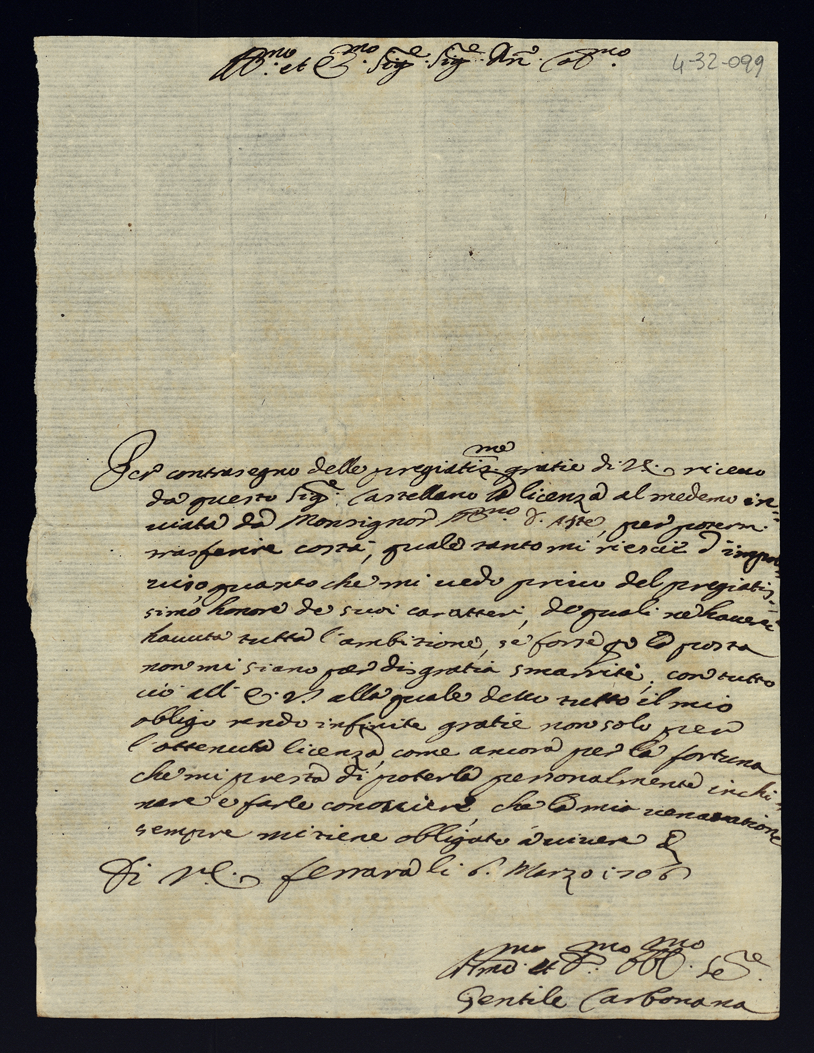 Ill.mo et E.mo Sig.e Sig.e P.ron Col.mo
4-32-099
Per contrasegno delle pregiatis.me gratie di V.E. riceuo
da questo Sig.e Castellano la licenza al medemo in=
uiata da Monsignor d'Aste, per potermi
trasferire costà, quale tanto mi riescie d'impro
uiso quanto che mi uedo priuo del pregiatis=
simo honore de suoi caratteri, de quali ne hauerei
hauuta tutta l'ambitione, se forse p la posta
non mi siano per disgratia smarriti, con tutto
ciò all' E.V. alla quale deuo tutto il mio
obligo rendo infinite gratie non solo per
l'ottenuta licenza, come ancora per la fortuna
che mi presta di poterla personalmente inchi=
nare e farle conossiere, che la mia ueneratione
sempre mi tiene obligato à uiuere
Di V.E. Ferrara li 6. Marzo 1706
Hmo et D.mo Obl.mo Se.re
Gentile Carbonana